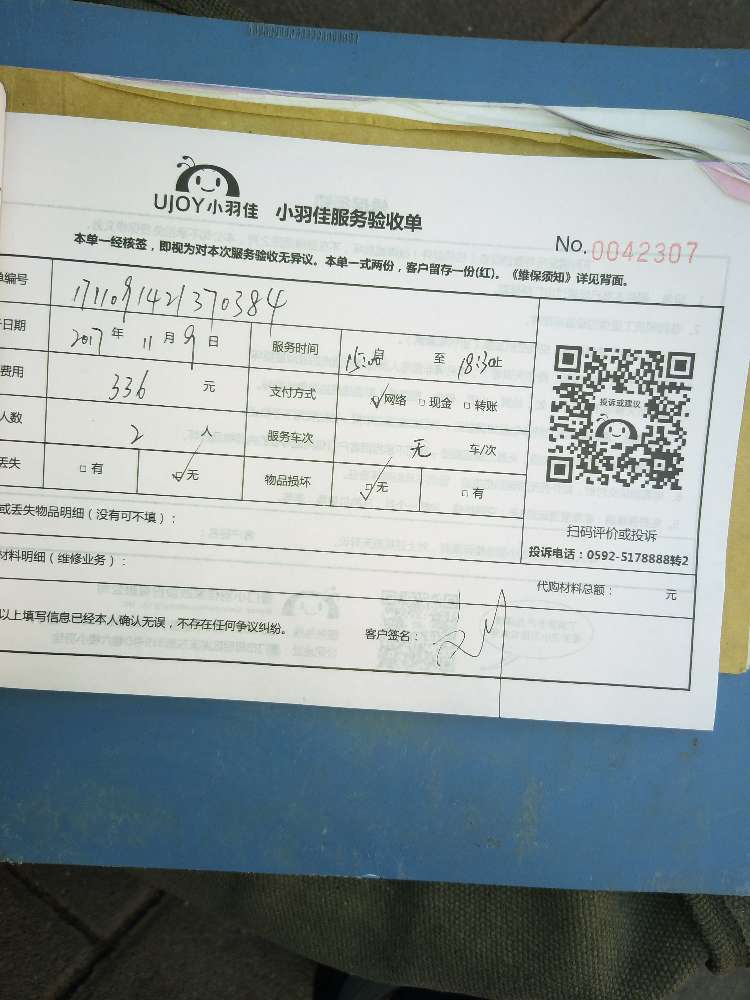 UJOY小羽佳 小羽佳服务验收单
No. 0042307
本单一经核签，即视为对本次服务验收无异议。本单一式两份，客户留存一份(红)。《维保须知》详见背面。
单编号 1711091421370384
日期 2017 年 11 月 9 日 服务时间 15:00 至 18:30止
费用 336 元 支付方式 网络 现金 转账
人数 2 人 服务车次 无 车/次
丢失 有 无 物品损坏 无 有
投诉或建议
扫码评价或投诉
投诉电话：0592-5178888转2
或丢失物品明细（没有可不填）：
材料明细（维修业务）： 代购材料总额： 元
以上填写信息已经本人确认无误，不存在任何争议纠纷。 客户签名：